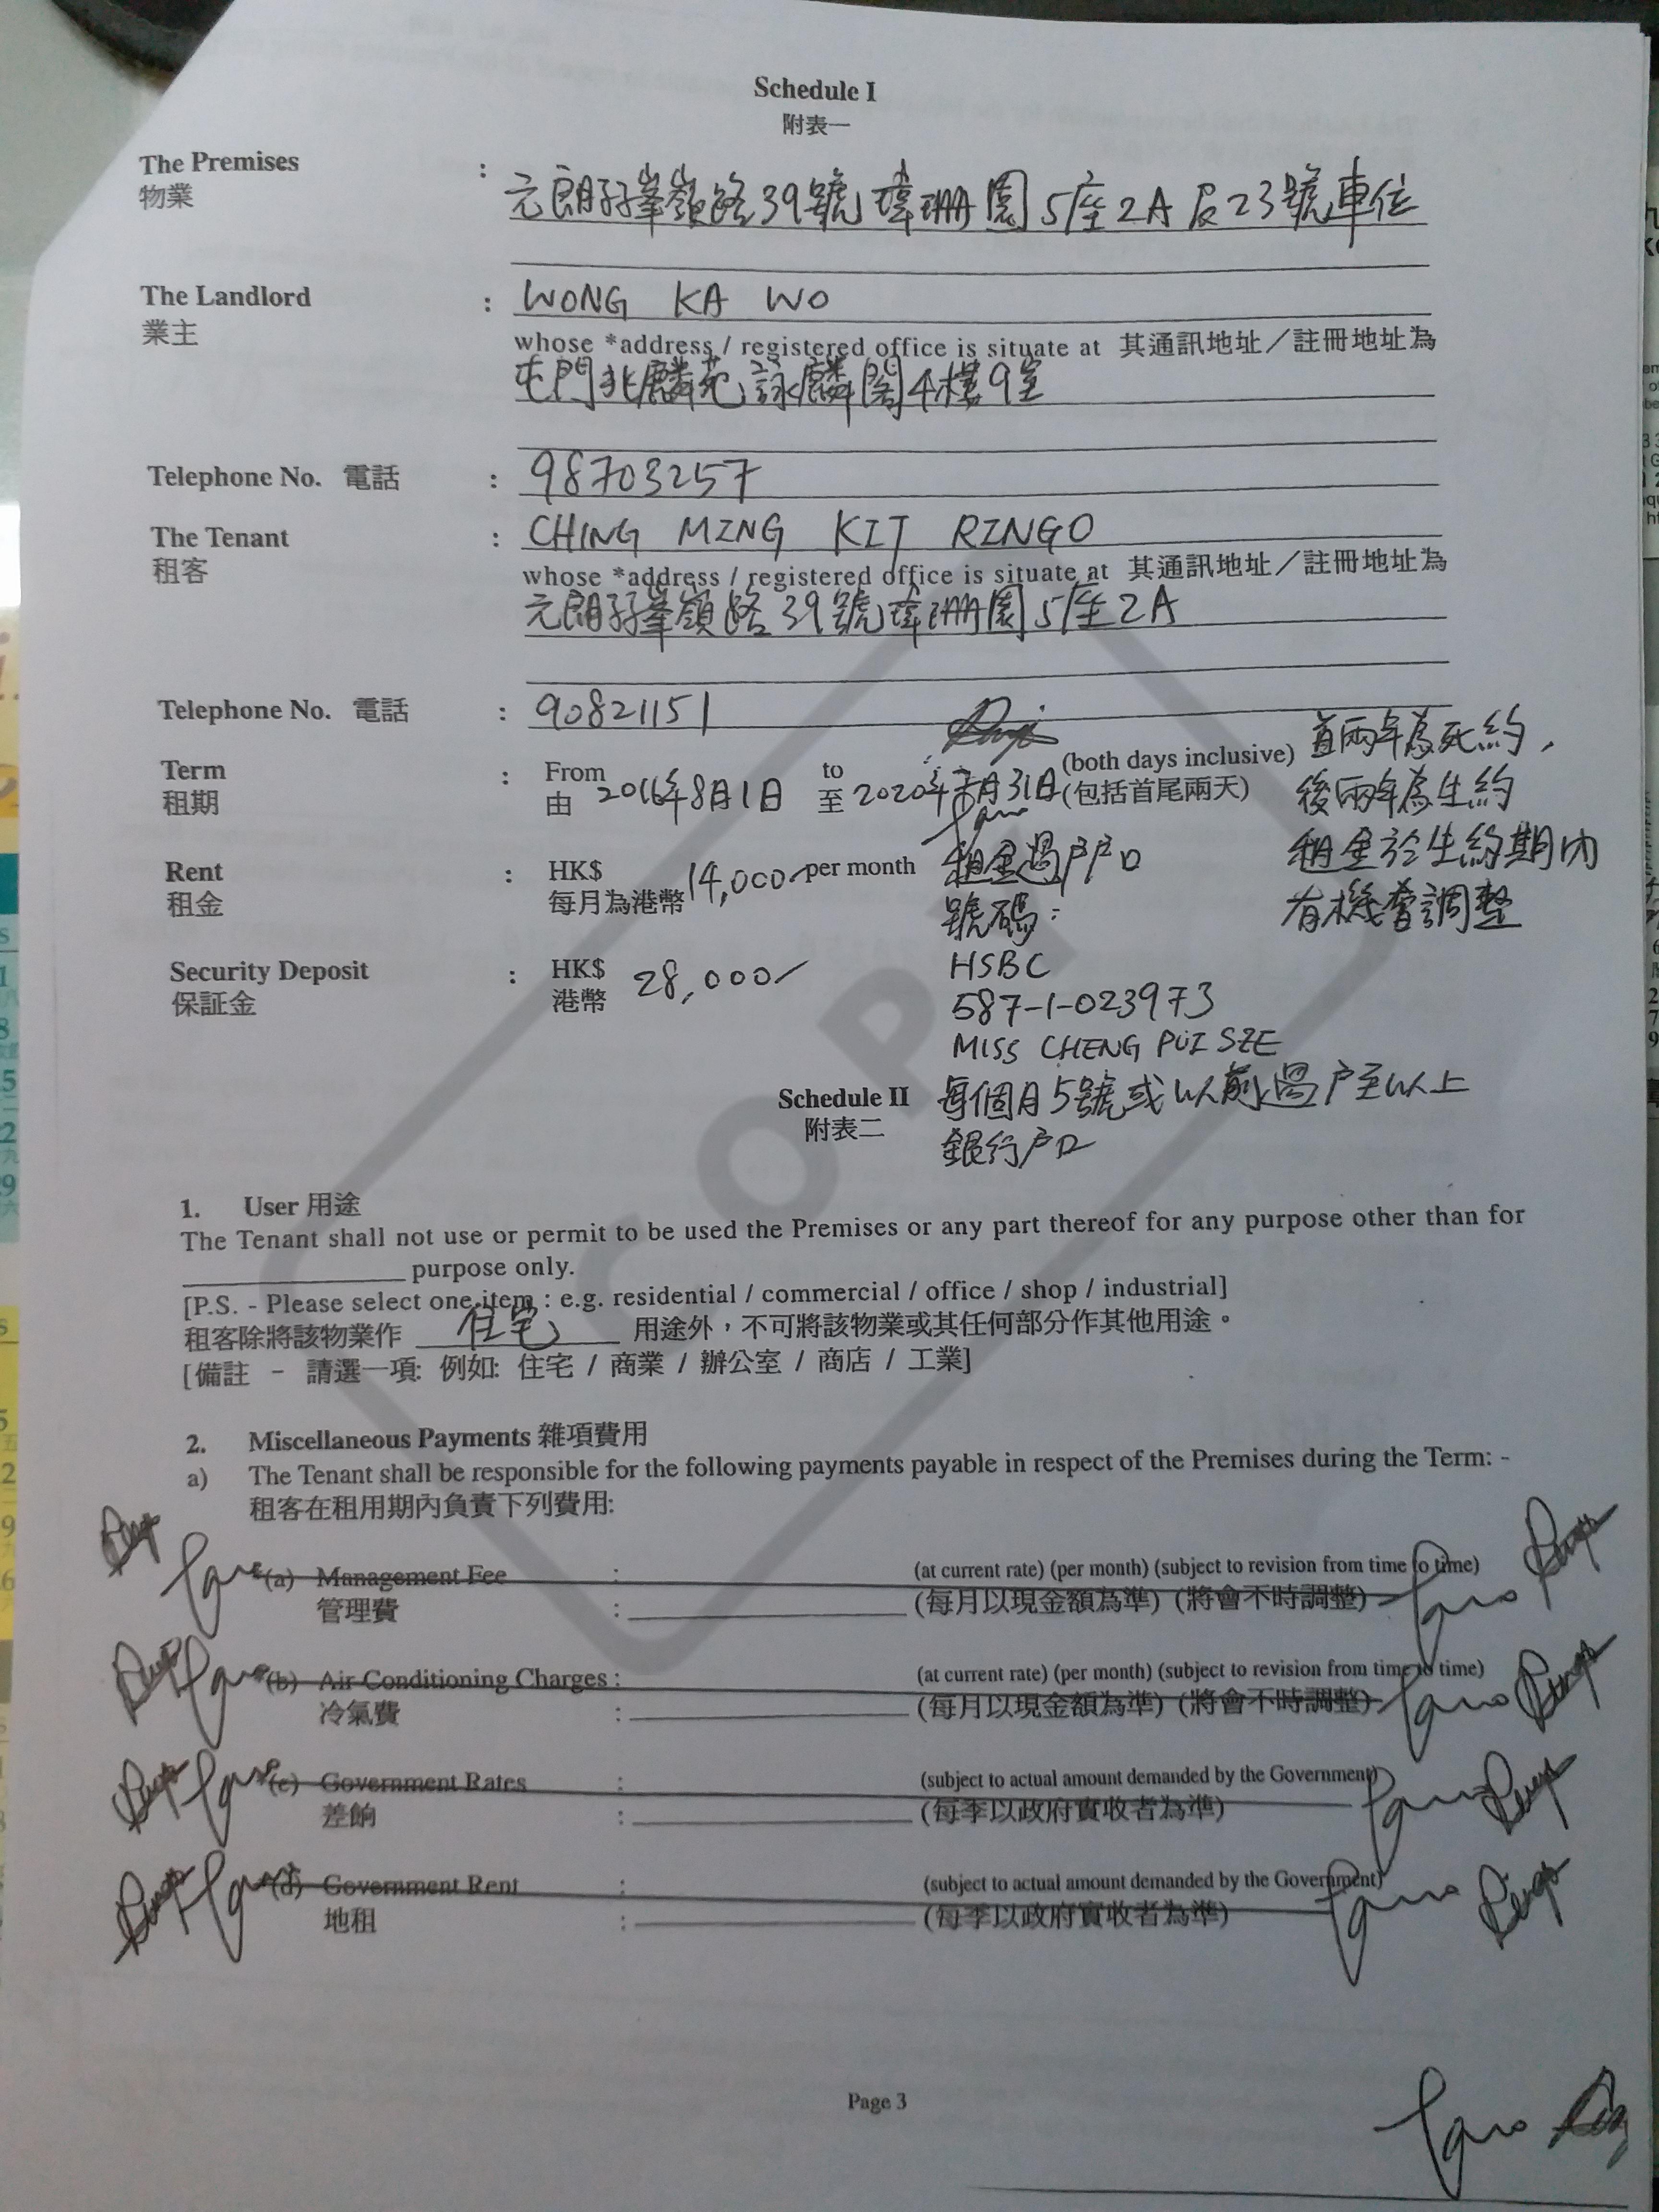 Schedule I
附表一
The Premises : 元朗孖峯嶺路39號瑋珊園5座2A及23號車位
物業
The Landlord : WONG KA WO
業主
whose *address / registered office is situate at 其通訊地址／註冊地址為
屯門兆麟苑詠麟閣4樓9室
Telephone No. 電話 : 98703257
The Tenant : CHING MING KIT RINGO
租客
whose *address / registered office is situate at 其通訊地址／註冊地址為
元朗孖峯嶺路39號瑋珊園5座2A
Telephone No. 電話 : 90821151
Term : From 2016年8月1日 to 2020年7月31日 (both days inclusive)
租期 由 至 (包括首尾兩天)
首兩年為死約,
後兩年為生約
租金於生約期內
有機會調整
Rent : HK$ 14,000 per month
租金 每月為港幣
租金過戶戶口
號碼:
HSBC
587-1-023973
MISS CHENG PUI SZE
每個月5號或以前過戶至以上
銀行戶口
Security Deposit : HK$ 28,000
保証金 港幣
Schedule II
附表二
1. User 用途
The Tenant shall not use or permit to be used the Premises or any part thereof for any purpose other than for
purpose only.
[P.S. - Please select one item : e.g. residential / commercial / office / shop / industrial]
租客除將該物業作 住宅 用途外，不可將該物業或其任何部分作其他用途。
[備註 - 請選一項: 例如: 住宅 / 商業 / 辦公室 / 商店 / 工業]
2. Miscellaneous Payments 雜項費用
a) The Tenant shall be responsible for the following payments payable in respect of the Premises during the Term: -
租客在租用期內負責下列費用:
(a) Management Fee : (at current rate) (per month) (subject to revision from time to time)
管理費 : (每月以現金額為準) (將會不時調整)
(b) Air-Conditioning Charges : (at current rate) (per month) (subject to revision from time to time)
冷氣費 : (每月以現金額為準) (將會不時調整)
(c) Government Rates : (subject to actual amount demanded by the Government)
差餉 : (每季以政府實收者為準)
(d) Government Rent : (subject to actual amount demanded by the Government)
地租 : (每季以政府實收者為準)
Page 3
COPY